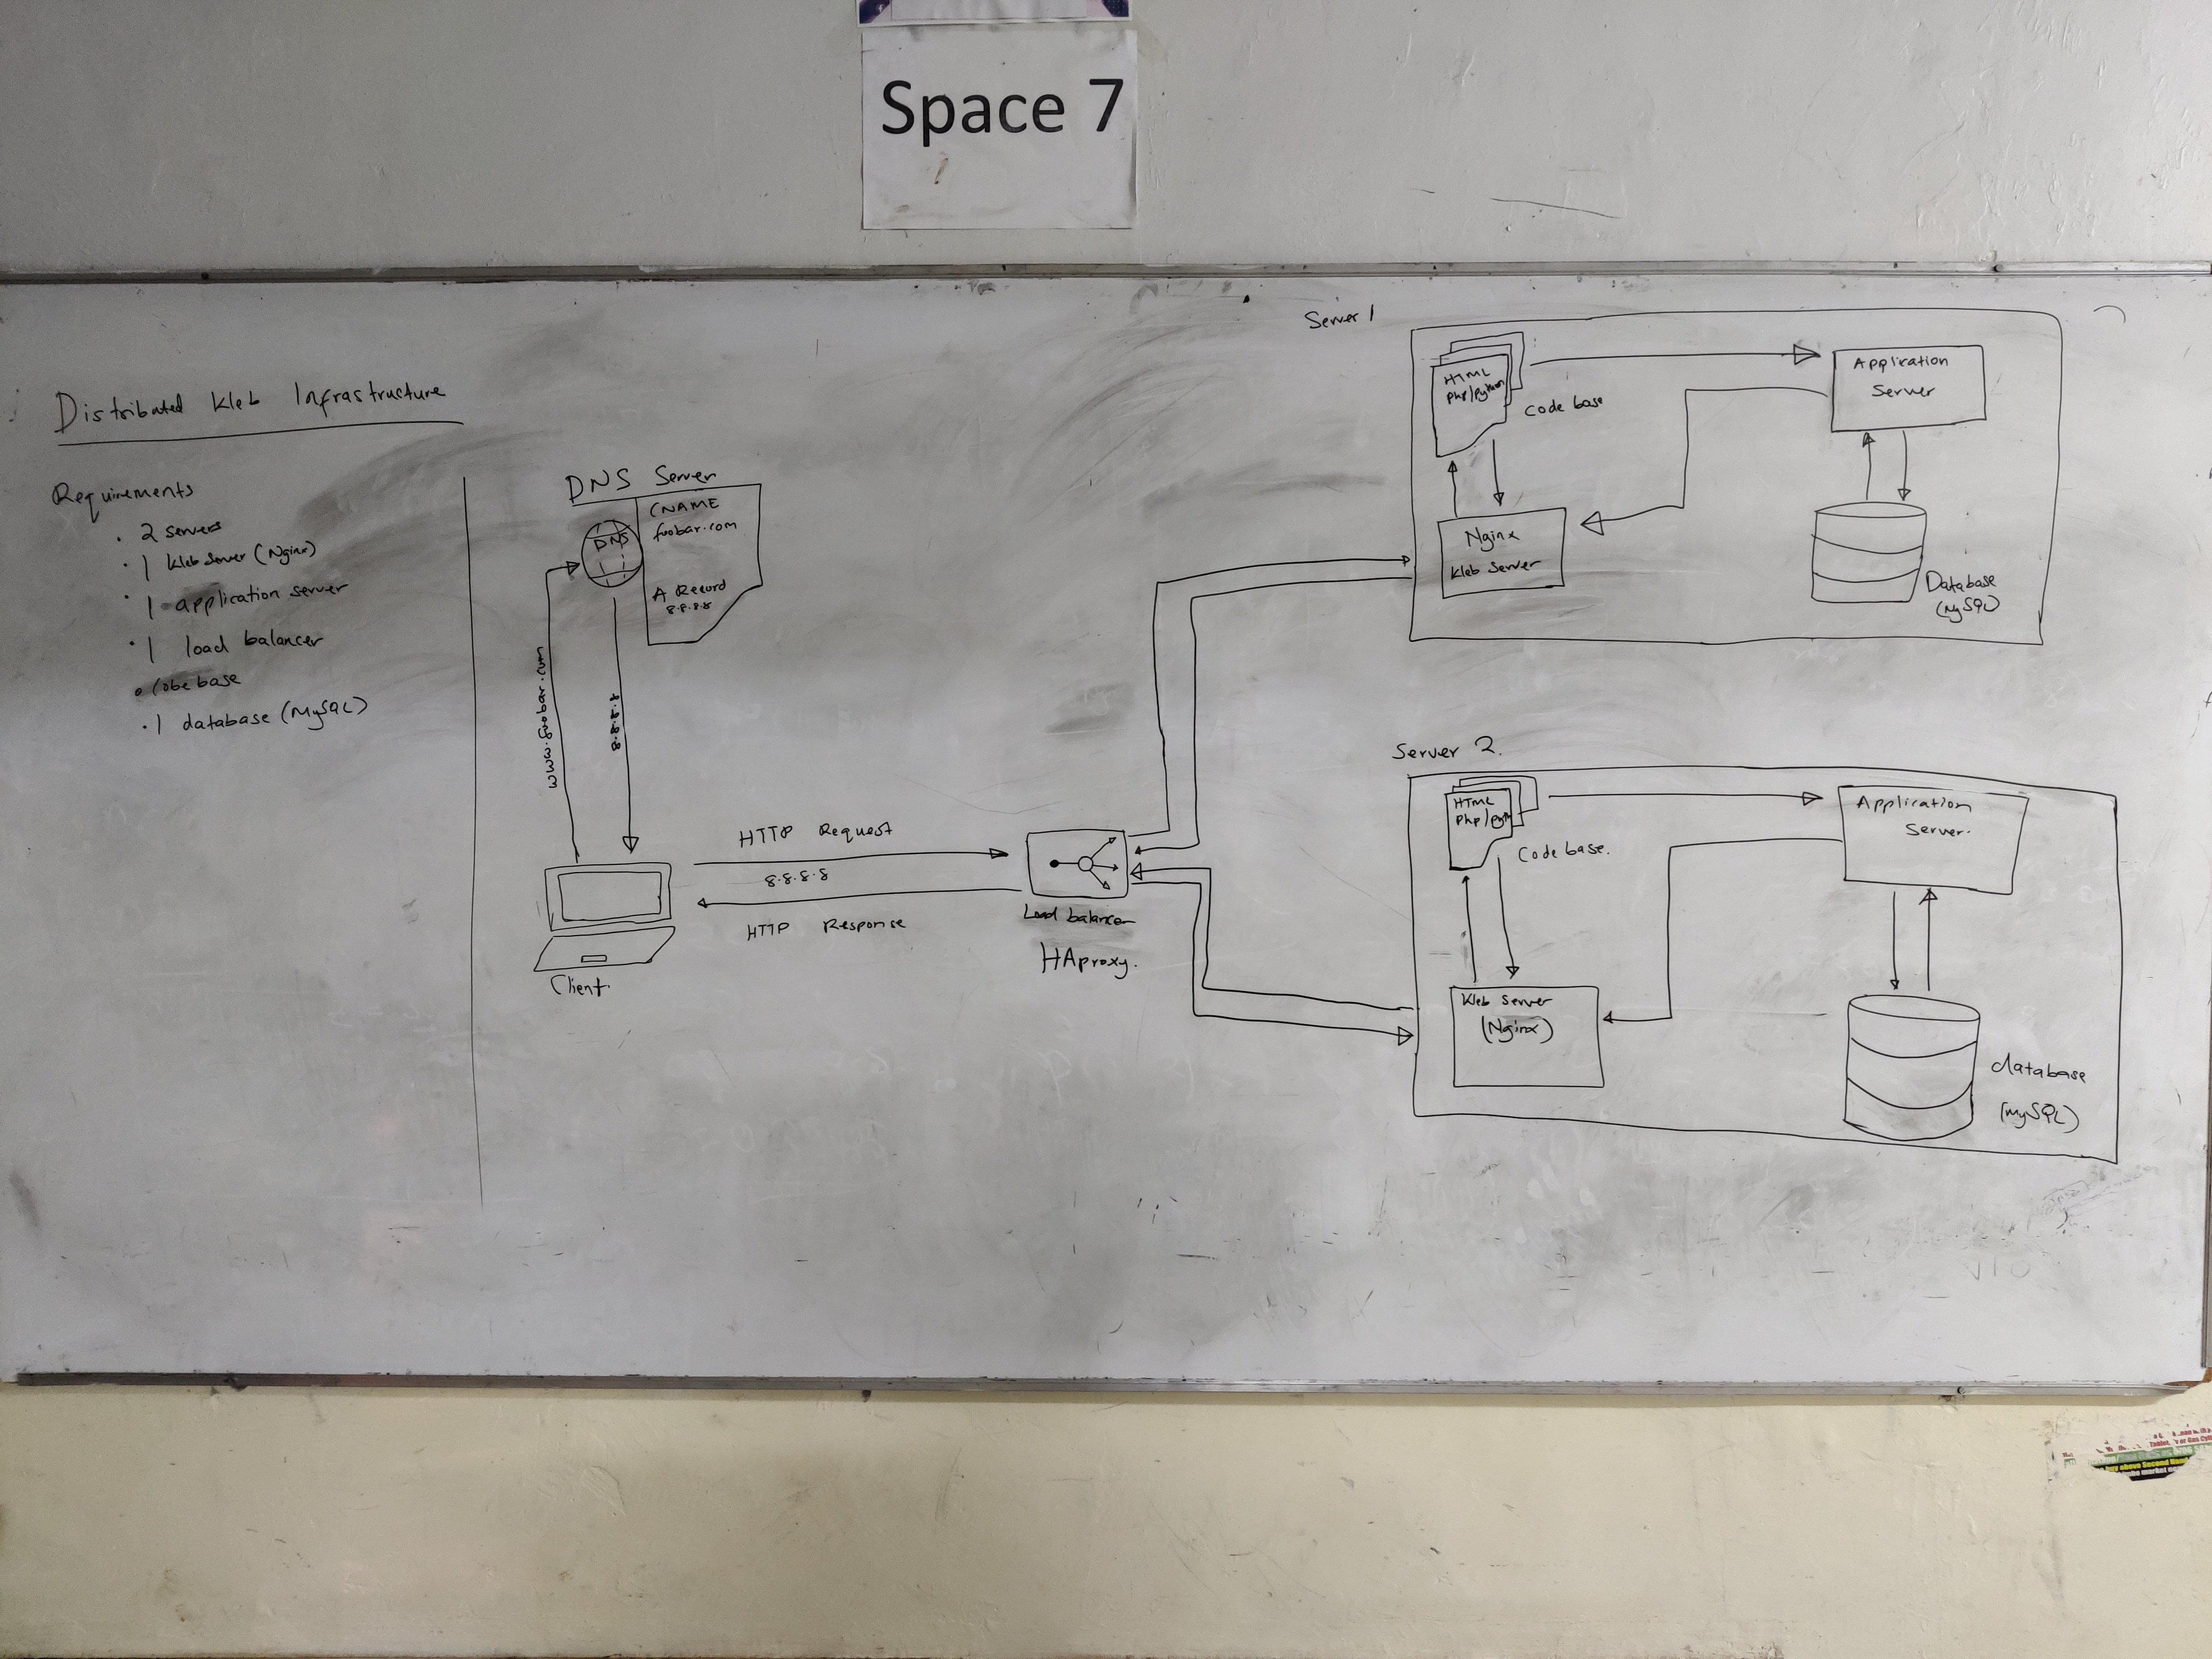 Space 7
Distributed Web Infrastructure
Requirements
. 2 servers
. 1 Web Server (Nginx)
. 1 application server
. 1 load balancer
. Cobe base
. 1 database (MySQL)
DNS Server
DNS
CNAME
foobar.com
A Record
8.8.8.8
www.foobar.com
8.8.8.8
Client
HTTP Request
8.8.8.8
HTTP Response
Load balancer
HAproxy.
Server 1
HTML
Php/python
Code base
Application
Server
Nginx
Web Server
Database
(MySQL)
Server 2.
HTML
Php/pyth
Code base.
Application
Server.
Web Server
(Nginx)
database
(MySQL)
buy above Second Hand
market